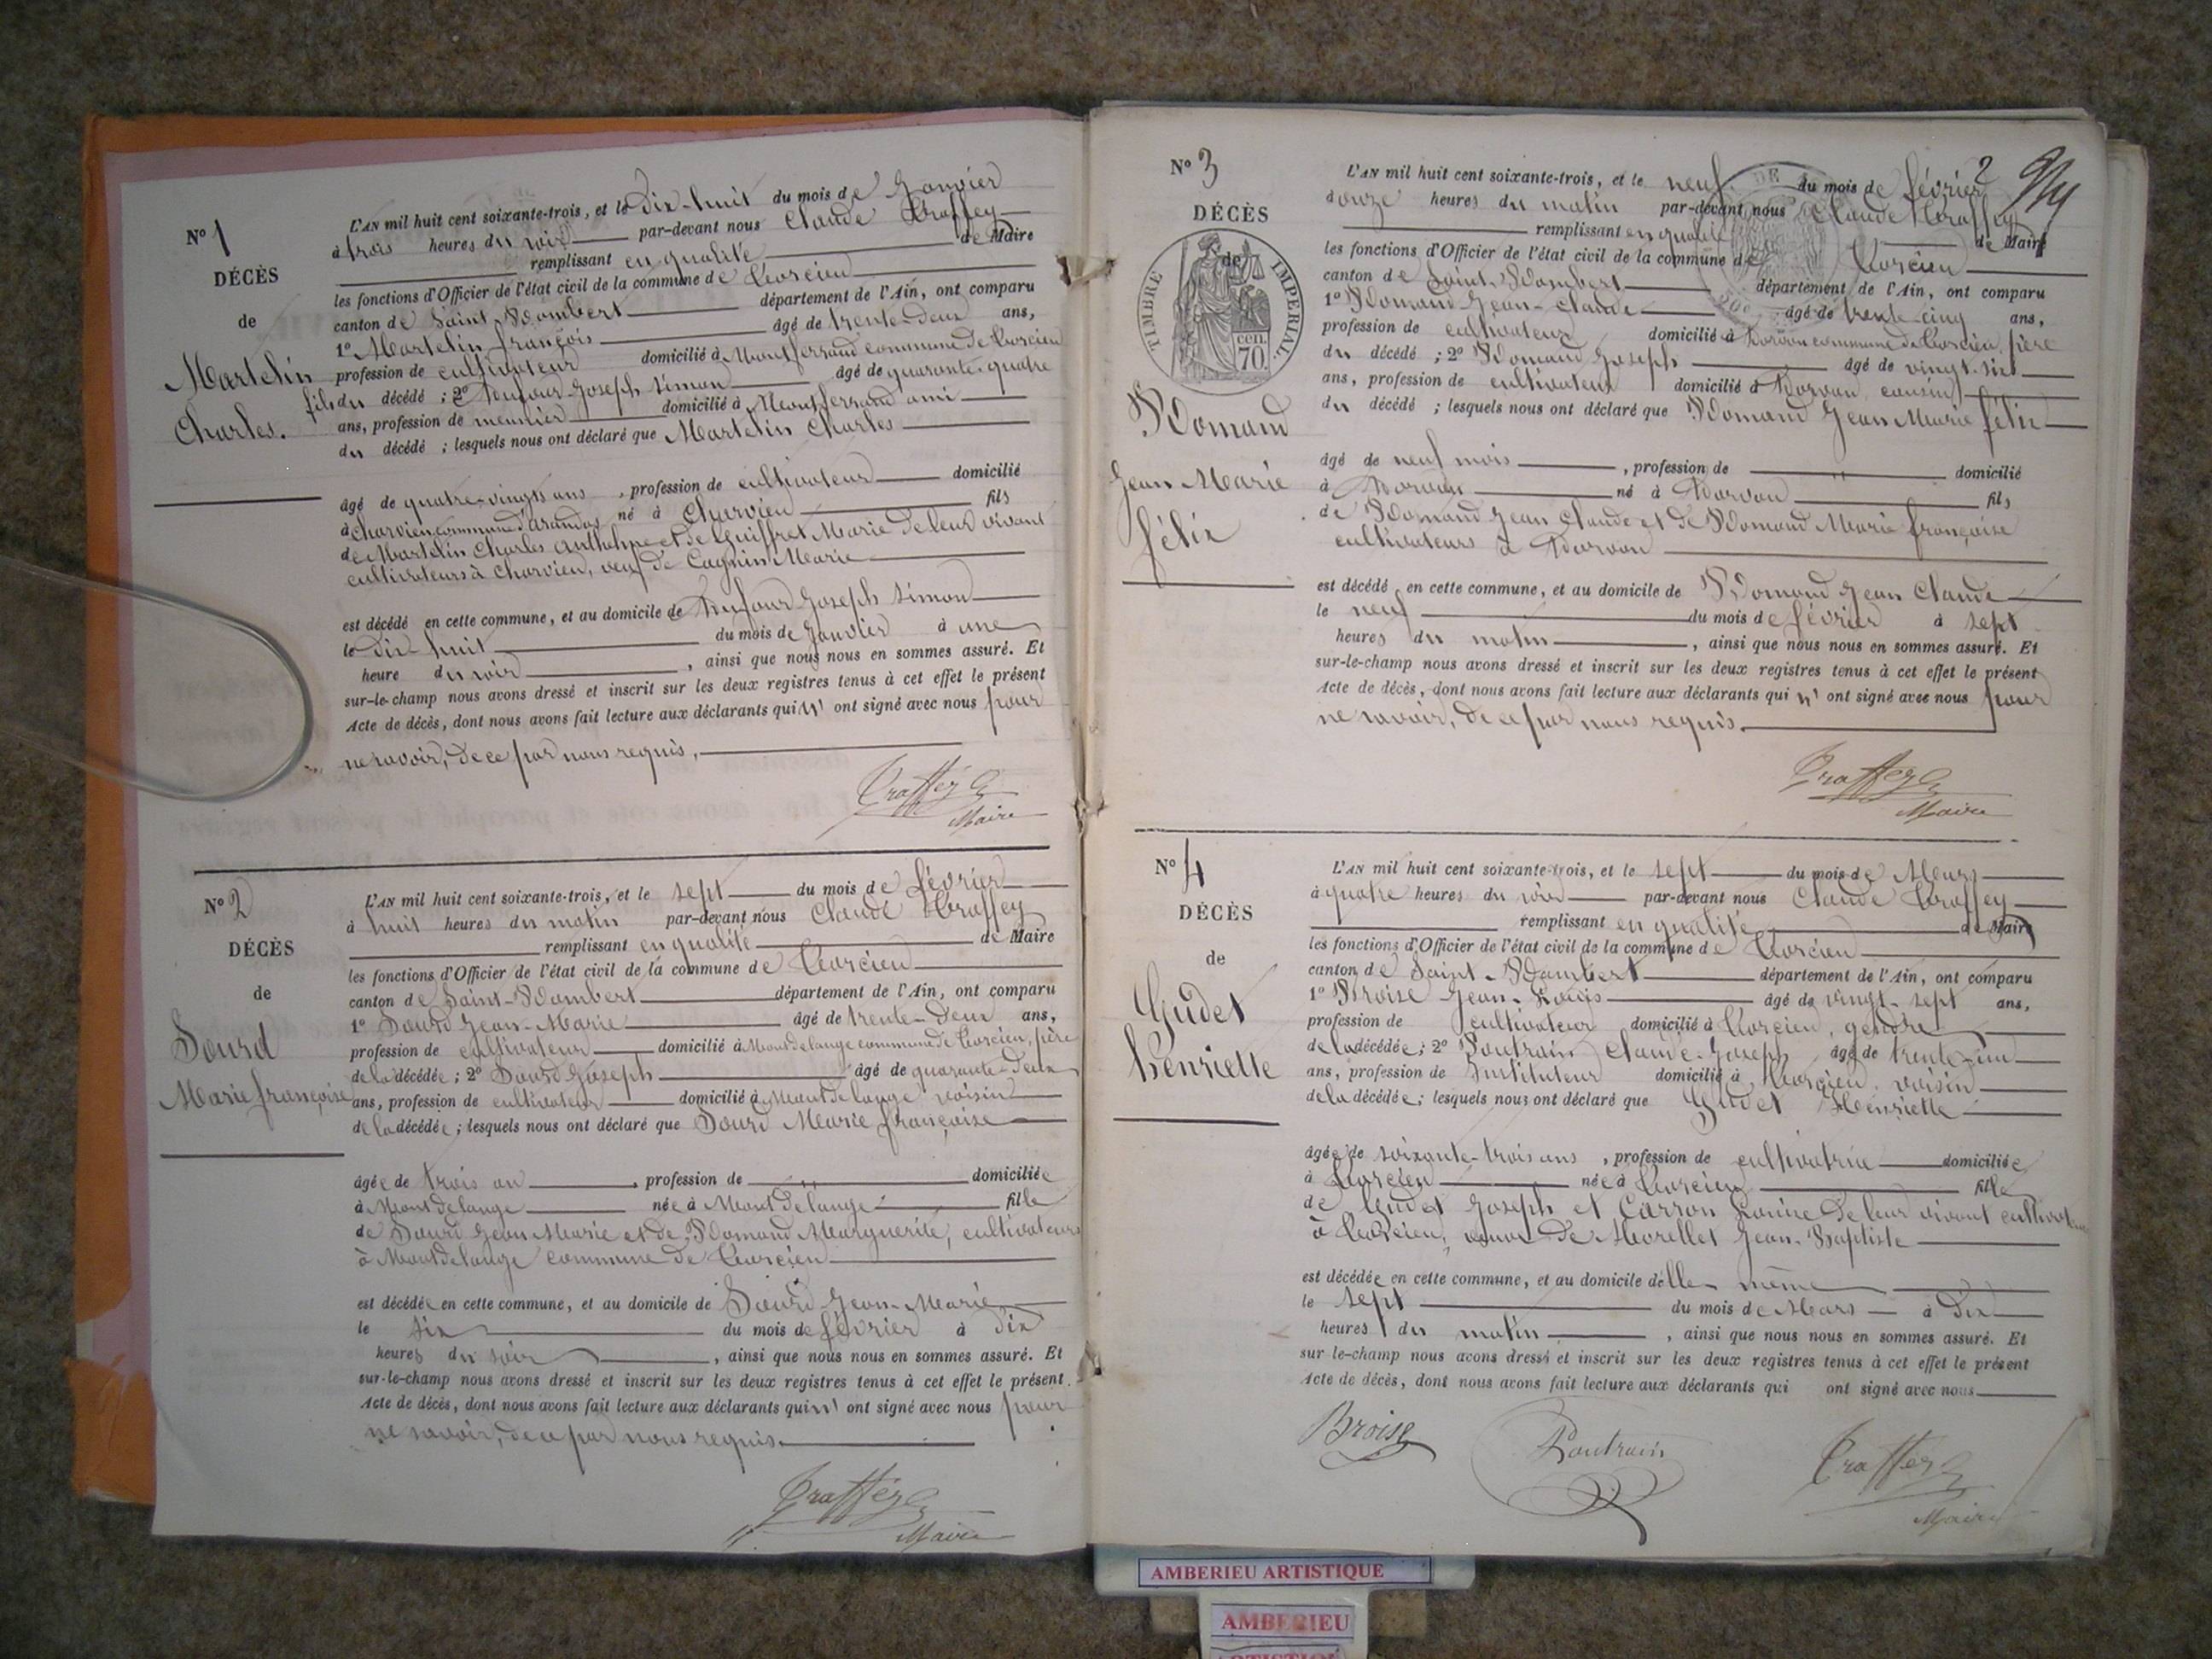 N° 1
DÉCÈS
de
Martelin
Charles.
L'AN mil huit cent soixante-trois, et le dix-huit du mois de Janvier
à trois heures du soir par-devant nous Claude Traffey
remplissant en qualité de Maire
les fonctions d'Officier de l'état civil de la commune de Torcieu
canton de Saint-Rambert département de l'Ain, ont comparu
1° Martelin françois âgé de trente-deux ans,
profession de cultivateur domicilié à Montferrand commune de Torcieu
fils du décédé ; 2° Dufour Joseph Simon âgé de quarante-quatre
ans, profession de meunier domicilié à Montferrand ami
du décédé ; lesquels nous ont déclaré que Martelin Charles
âgé de quatre-vingts ans, profession de cultivateur domicilié
à Charvieu commune d'arandas né à Charvieu fils
de Martelin Charles Anthelme et de Guiffret Marie de leur vivant
cultivateurs à Charvieu, veuf de Cagnin Marie
est décédé en cette commune, et au domicile de Dufour Joseph Simon
le dix-huit du mois de Janvier à une
heure du soir, ainsi que nous nous en sommes assuré. Et
sur-le-champ nous avons dressé et inscrit sur les deux registres tenus à cet effet le présent
Acte de décès, dont nous avons fait lecture aux déclarants qui n' ont signé avec nous pour
ne savoir, de ce par nous requis,
Traffey
Maire
N° 2
DÉCÈS
de
Sourd
Marie françoise
L'AN mil huit cent soixante-trois, et le sept du mois de février
à huit heures du matin par-devant nous Claude Traffey
remplissant en qualité de Maire
les fonctions d'Officier de l'état civil de la commune de Torcieu
canton de Saint-Rambert département de l'Ain, ont comparu
1° Sourd Jean-Marie âgé de trente-deux ans,
profession de cultivateur domicilié à Montdelange commune de Torcieu, père
de la décédée ; 2° Sourd Joseph âgé de quarante-deux
ans, profession de cultivateur domicilié à Montdelange voisin
de la décédée ; lesquels nous ont déclaré que Sourd Marie françoise
âgée de trois an, profession de domiciliée
à Montdelange née à Montdelange fille
de Sourd Jean Marie et de Romand Marguerite, cultivateurs
à Montdelange commune de Torcieu
est décédée en cette commune, et au domicile de Sourd Jean-Marie
le six du mois de février à dix
heures du soir, ainsi que nous nous en sommes assuré. Et
sur-le-champ nous avons dressé et inscrit sur les deux registres tenus à cet effet le présent
Acte de décès, dont nous avons fait lecture aux déclarants qui n' ont signé avec nous pour
ne savoir, de ce par nous requis.
Traffey
Maire
2
N° 3
DÉCÈS
de
TIMBRE IMPERIAL.
cen.
70.
Romand
Jean Marie
félix
L'AN mil huit cent soixante-trois, et le neuf du mois de février
douze heures du matin par-devant nous Claude Traffey
remplissant en qualité de Maire
les fonctions d'Officier de l'état civil de la commune de Torcieu
canton de Saint-Rambert département de l'Ain, ont comparu
1° Romand Jean-Claude âgé de trente-cinq ans,
profession de cultivateur domicilié à Dorvan commune de Torcieu, père
du décédé ; 2° Romand Joseph âgé de vingt-six
ans, profession de cultivateur domicilié à Dorvan, cousin
du décédé ; lesquels nous ont déclaré que Romand Jean Marie félix
âgé de neuf mois, profession de domicilié
à Dorvan né à Dorvan fils
de Romand Jean Claude et de Romand Marie françoise
cultivateurs à Dorvan
est décédé en cette commune, et au domicile de Romand Jean Claude
le neuf du mois de février à sept
heures du matin, ainsi que nous nous en sommes assuré. Et
sur-le-champ nous avons dressé et inscrit sur les deux registres tenus à cet effet le présent
Acte de décès, dont nous avons fait lecture aux déclarants qui n' ont signé avec nous pour
ne savoir, de ce par nous requis.
Traffey
Maire
N° 4
DÉCÈS
de
Gudet
henriette
L'AN mil huit cent soixante-trois, et le sept du mois de Mars
à quatre heures du soir par-devant nous Claude Traffey
remplissant en qualité de Maire
les fonctions d'Officier de l'état civil de la commune de Torcieu
canton de Saint-Rambert département de l'Ain, ont comparu
1° Broise Jean-Louis âgé de vingt-sept ans,
profession de cultivateur domicilié à Torcieu, gendre
de la décédée ; 2° Poutrain Claude-Joseph âgé de trente-un
ans, profession de Instituteur domicilié à Torcieu, voisin
de la décédée ; lesquels nous ont déclaré que Gudet Henriette
âgée de soixante-trois ans, profession de cultivatrice domiciliée
à Torcieu née à Torcieu fille
de Gudet Joseph et Carron Louise de leur vivant cultivateurs
à Torcieu, veuve de Morellet Jean-Baptiste
est décédée en cette commune, et au domicile d'elle même
le sept du mois de Mars à dix
heures du matin, ainsi que nous nous en sommes assuré. Et
sur-le-champ nous avons dressé et inscrit sur les deux registres tenus à cet effet le présent
Acte de décès, dont nous avons fait lecture aux déclarants qui ont signé avec nous
Broise Poutrain Traffey
Maire
AMBERIEU ARTISTIQUE
AMBERIEU
ARTISTIQUE